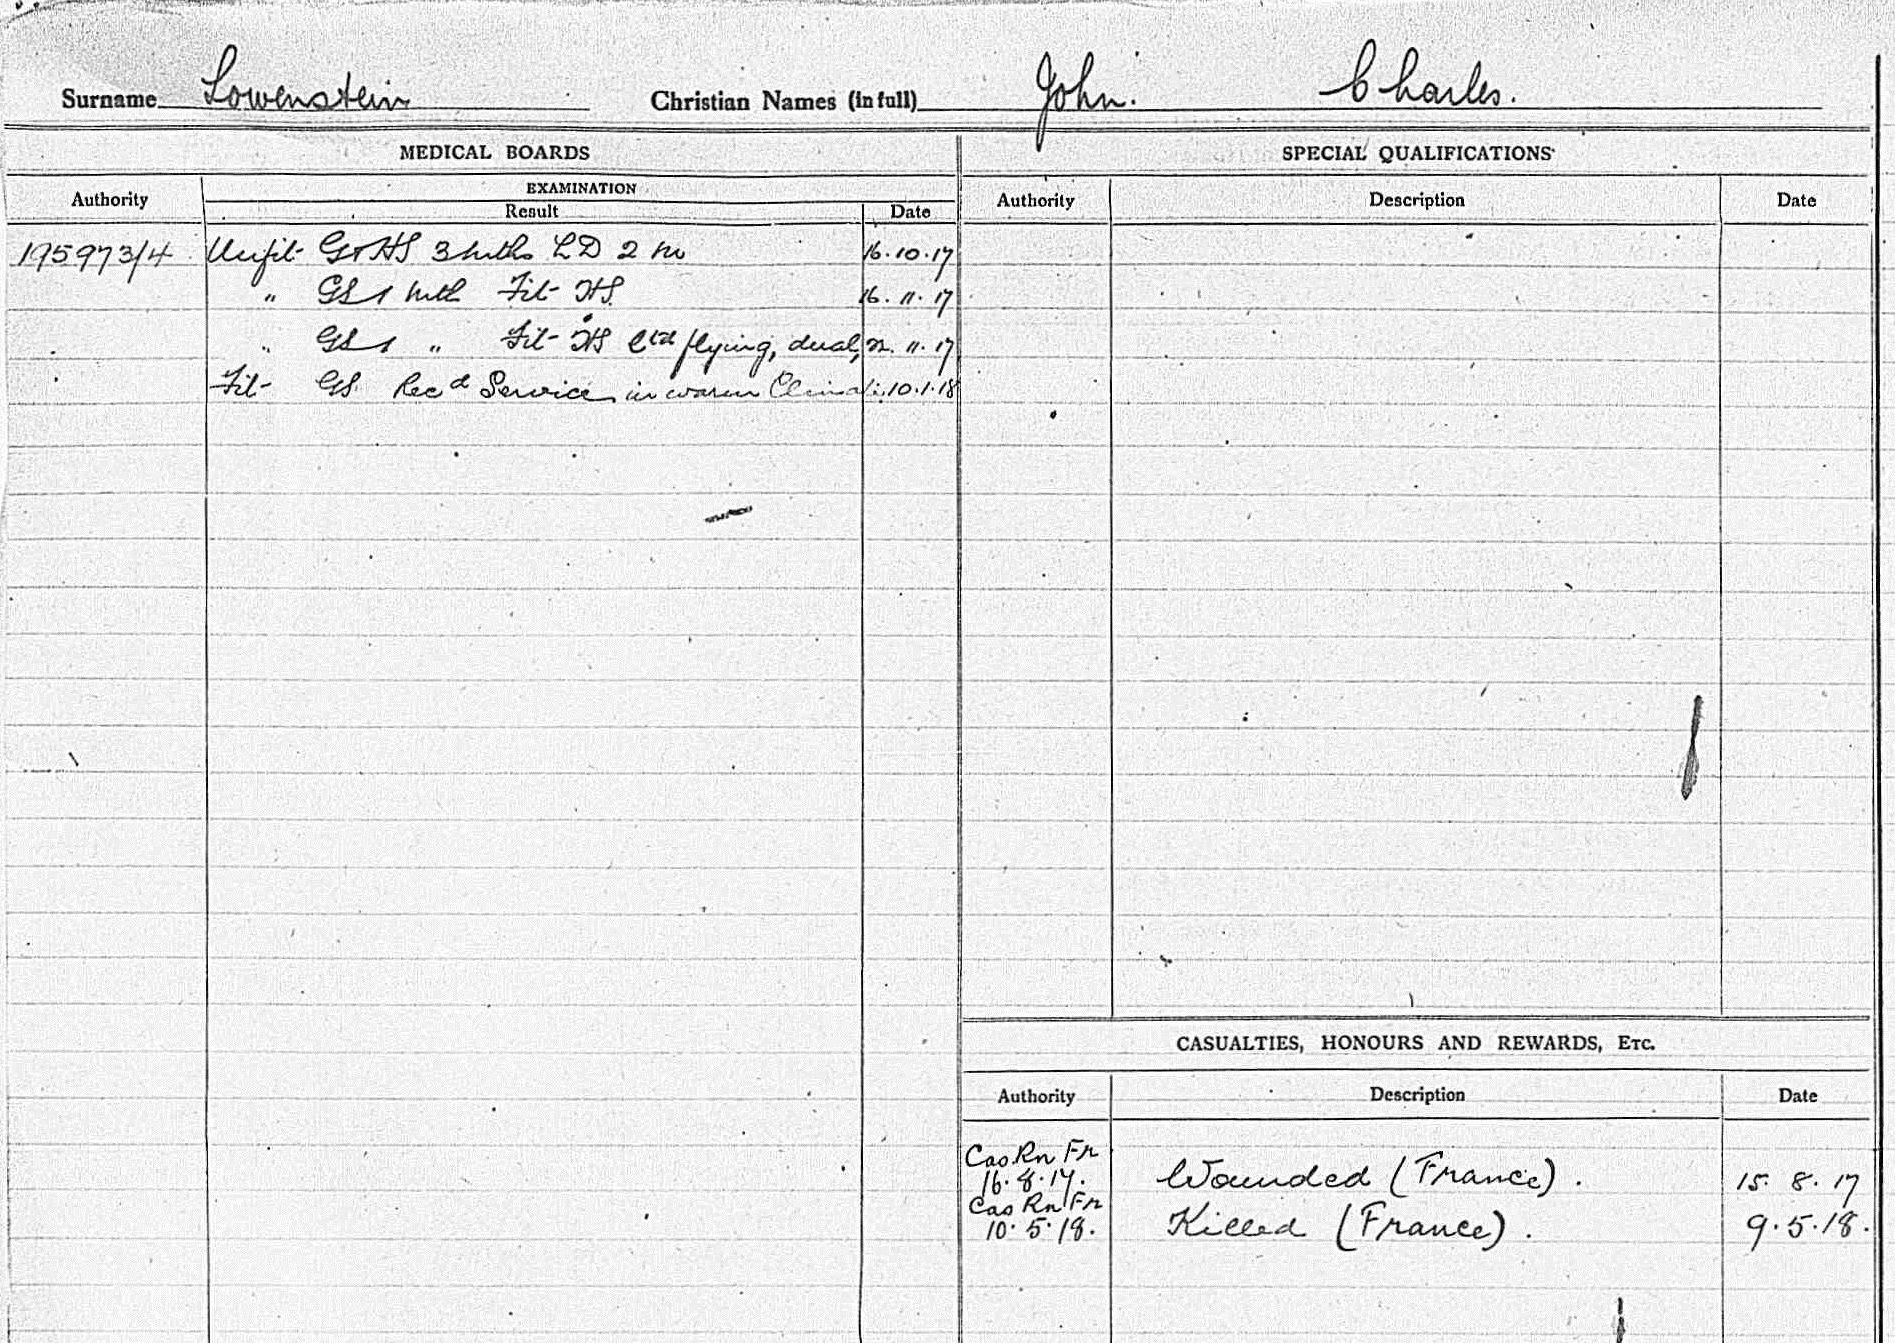 Surname Lowenstein Christian Names (in full) John. Charles.
MEDICAL BOARDS
SPECIAL QUALIFICATIONS
Authority
EXAMINATION
Result
Date
Authority
Description
Date
195973/4 Unfit GS HS 3 mths LD 2 m 16.10.17
" GS 1 mth Fit HS. 16.11.17
" GS 1 " Fit HS ltd flying, dual, 22.11.17
Fit GS Recd Service in warm Climate. 10.1.18
CASUALTIES, HONOURS AND REWARDS, ETC.
Authority
Description
Date
Cas Rn Fr
16.8.17. Wounded (France). 15.8.17
Cas Rn Fr
10.5.18. Killed (France). 9.5.18.